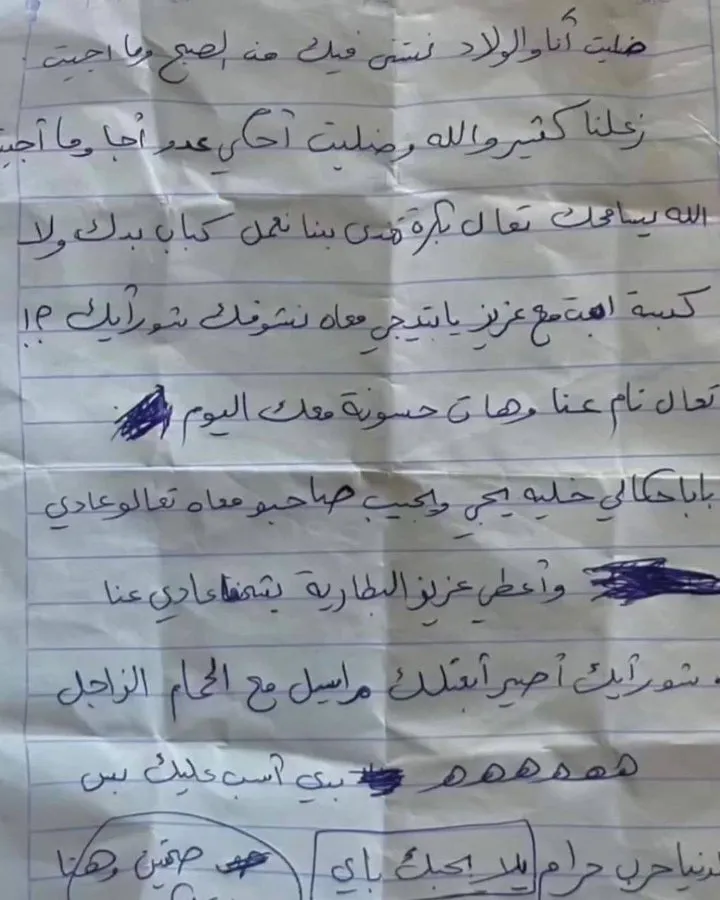 ضليت أنا والولاد نستنى فيك منه الصبح وما اجيت
زعلنا كثير والله وضليت أحكي عدو أجا وما أجيت
الله يسامحك تعال بكرة بنا نعمل كباب بدك ولا
كبسة ابعت مع عزيز يا بتيجي معاه نشوفك شو رأيك ؟!
تعال نام عنا وهات حسونة معك اليوم
بابا حكالي خليه يجي ويجيب صاحبو معاه تعالو عادي
وأعطي عزيز البطارية يشحنها عادي عنا
شو رأيك أصير أبعتلك مراسيل مع الحمام الزاجل
هههههه بدي أسب عليك بس
لدنيا حرب حرام يلا بحبك باي وهنا